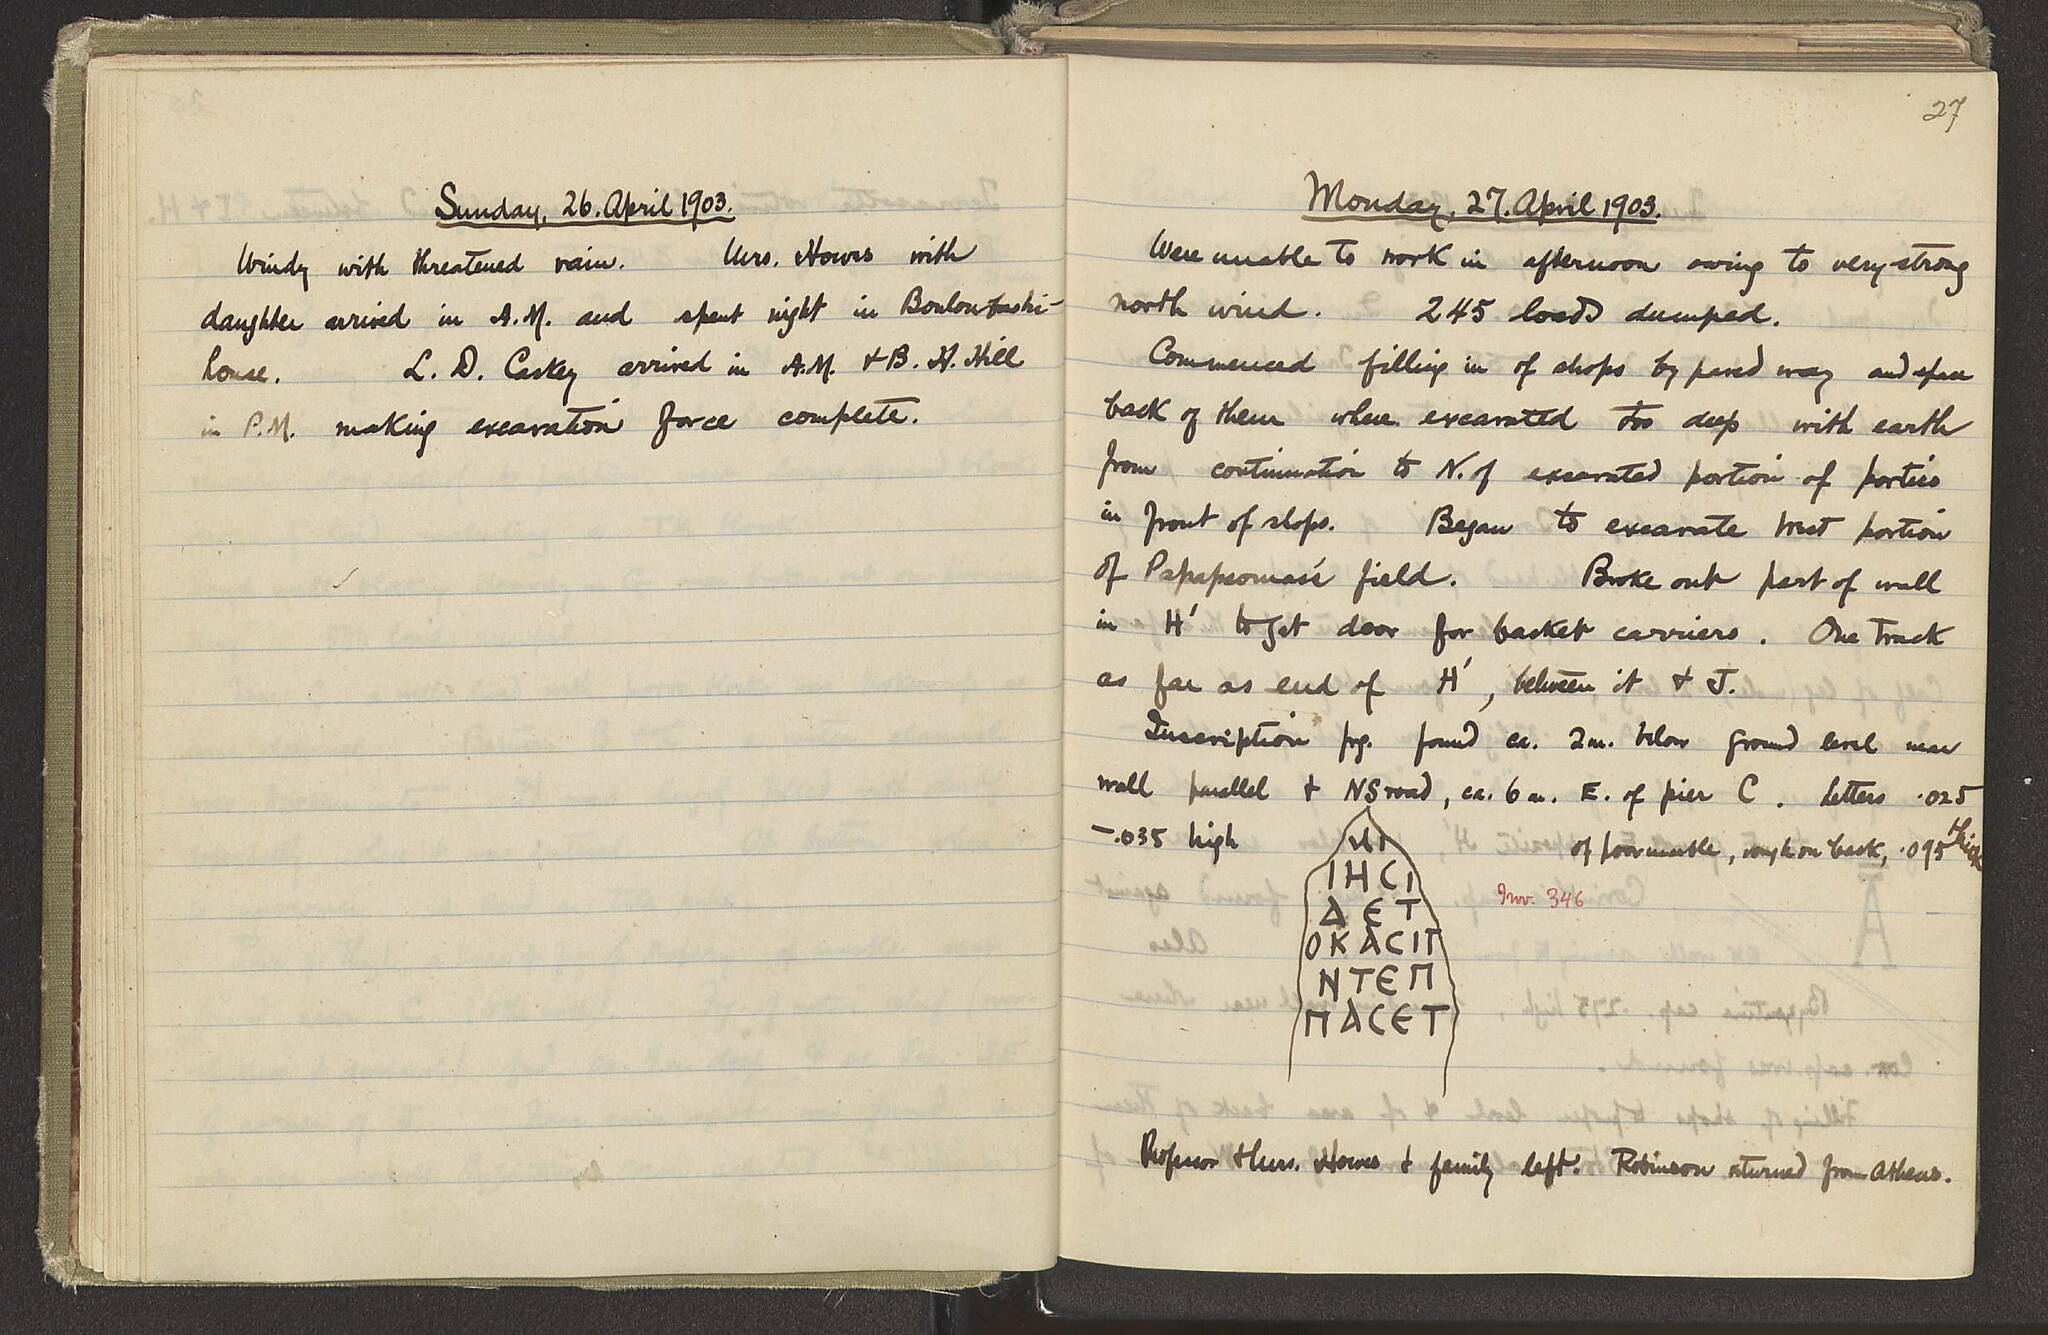 Sunday, 26. April 1903.
Windy with threatened rain. Mrs. Howes with
daughter arrived in A.M. and spent night in Bouloukashi-
house. L. D. Caskey arrived in A.M. & B. H. Hill
in P.M. making excavation force complete.
27
Monday, 27. April 1903.
Were unable to work in afternoon owing to very strong
north wind. 245 loads dumped.
Commenced filling in of shops by paved way and space
back of them where excavated too deep with earth
from continuation to N. of excavated portion of portico
in front of shops. Began to excavate west portion
of field. Broke out part of wall
in H' to get door for basket carriers. One track
as far as end of H', between it & J.
Inscription frg. found ca. 2m. below ground level near
wall parallel to NS road, ca. 6 m. E. of pier C. Letters .025
-.035 high of poor marble, rough on back, .095 thick
ΙΗCΙ
Inv. 346
ΔΕΤ
ΟΚΑCΙΠ
ΝΤΕΠ
ΠΑCΕΤ
Professor & Mrs. Howes & family left. Robinson returned from Athens.